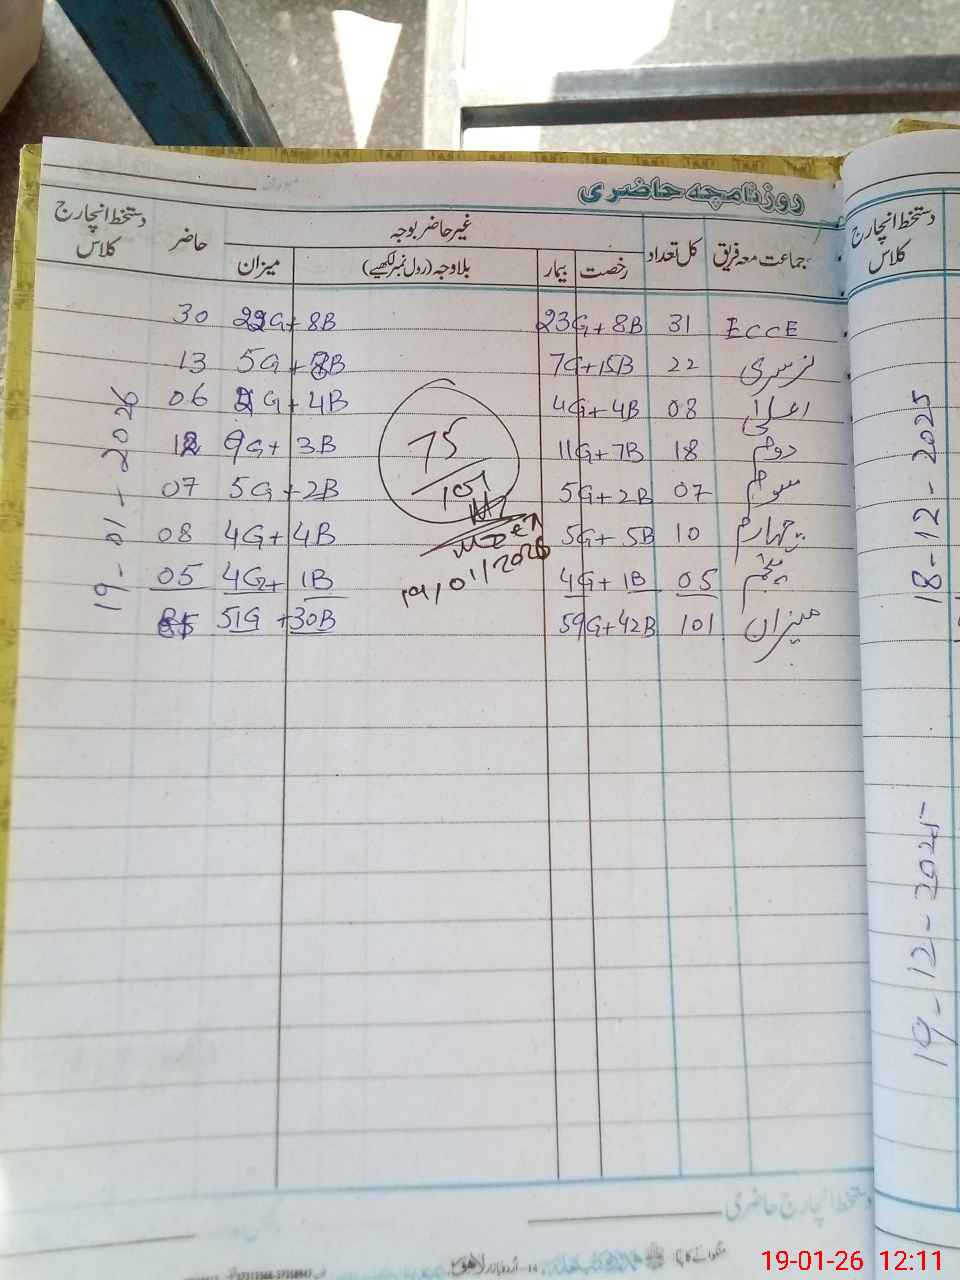 روزنامچہ حاضری
جماعت معہ فریق کل تعداد غیر حاضر بوجہ حاضر دستخط انچارج کلاس
رخصت بیمار بلاوجہ (رول نمبر لکھیے) میزان
ECCE 31 23G + 8B 22G + 8B 30
نرسری 22 7G + 15B 5G + 8B 13
اعلیٰ 08 4G + 4B 2G + 4B 06
دوم 18 11G + 7B 9G + 3B 12
سوم 07 5G + 2B 5G + 2B 07
چہارم 10 5G + 5B 4G + 4B 08
پنجم 05 4G + 1B 4G + 1B 05
میزان 101 59G + 42B 51G + 30B
19-01-2026
75
101
19/01/2026
دستخط انچارج حاضری
دستخط انچارج
کلاس
18-12-2025
19-12-2025
19-01-26 12:11